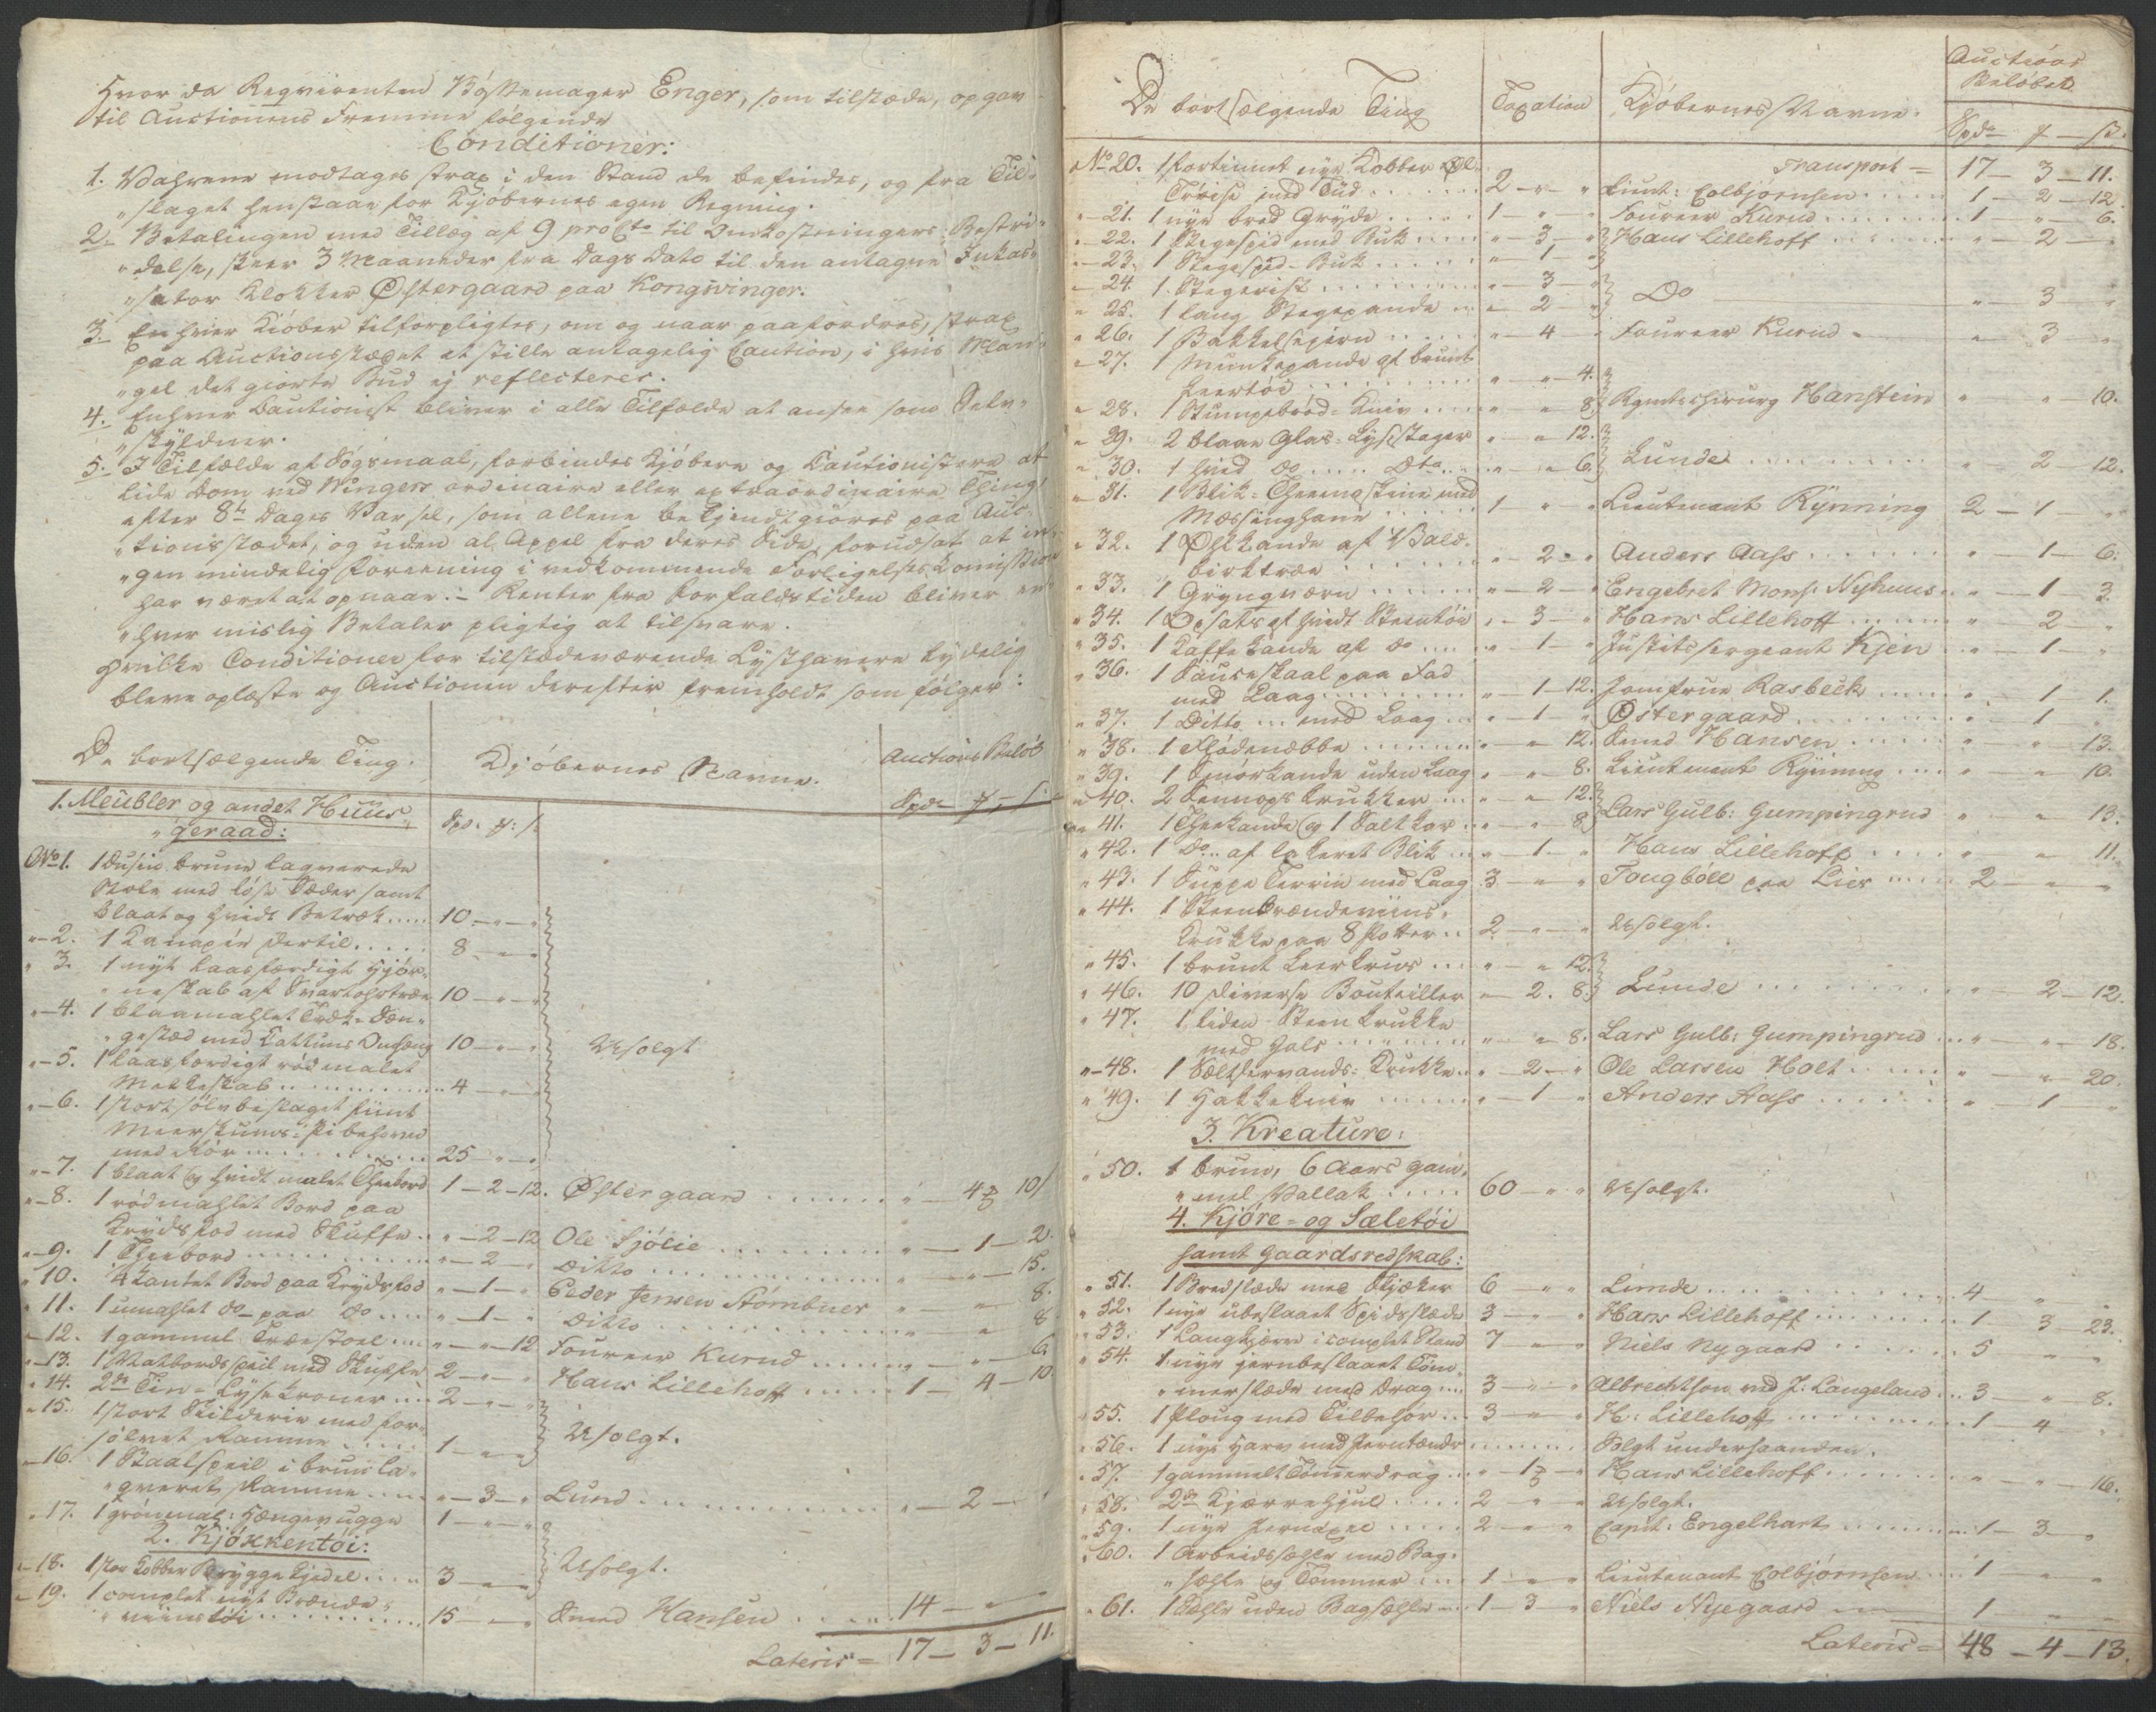 Hvor da Reqvirenten Bøssemager Enger, som tilstæde, opgav
til Auctionens Fremme følgende
Conditioner:
1. Vahrene modtages strax i den Stand de befindes, og fra Til-
"slaget henstaar for Kjøbernes egen Regning.
2. Betalingen med Tillæg af 9 proCto til Omkostningers Bestri-
"delse, skeer 3 Maaneder fra Dags Dato til den antagne Inkas-
"sator Klokker Østergaard paa Kongsvinger.
3. Enhver Kiøber tilforpligtes, om og naar paafordres, strax
paa Auctionsstædet at stille antagelig Caution, i hvis Man-
"gel det giorte Bud ej reflecteres.
4. Enhver Cautionist bliver i alle Tilfælde at ansee som Selv-
"skyldner.
5. I Tilfælde af Søgsmaal, forbindes Kjøbere og Cautionistere at
lide Dom ved Wingers ordinaire eller extraordinaire Thing,
efter 8te Dages Varsel, som allene bekjendtgiøres paa Auc-
"tionsstædet, og uden al Appel fra deres Side, forudsat at in-
"gen mindelig Forening i vedkommende Forligelses Comission
har været at opnaae. - Renter fra Forfaldstiden bliver en-
"hver mislig Betaler pligtig at tilsvare.
Hvilke Conditioner for tilstædeværende Lysthavere tydelig
bleve oplæste og Auctionen derefter fremholdt som følger:
De bortsælgende Ting. Kjøbernes Navne. Auctions Beløb
Spd. # ß
1. Meubler og andet Huus- Spd. #: ß:
"geraad:
No 1. 1 Dusin brune laqverede
Stole med løse Sæder samt
blaat og hvidt Betræk..... 10 - " - "
" - 2. 1 Kanapee dertil..... 8 - " - "
" 3. 1 nyt laasfærdigt Hjør-
"neskab af Svartohrtræe 10 - " - "
" - 4. 1 blaamahlet Træk-Sæn-
"gestæd med Kattuns Omhæng 10 - " - " Usolgt
" - 5. 1 laasfærdigt rødmalet
Melkeskab.............. 4 - " - "
" - 6. 1 stort sølvbeslaget fiint
Meerskums-Pibehoved
med Rør............. 25 - " - "
" - 7. 1 blaat og hvidt malet Theebord 1 - 2 - 12. Østergaard........ " - 4 # 10/
" - 8. 1 rødmahlet Bord paa
Krydsfod med Skuffe.. " - 2 - 12 Ole Sjølie......... " - 1 - 2.
" - 9. 1 Theebord........... " - 2 - " Ditto............ " - " - 15.
" 10. 4 kantet Bord paa Krydsfod " - 1 - " Peder Jensen Strømbner " " 8.
" 11. 1 umahlet do - paa do.... " - 1 - " Ditto............ " " 8
" - 12. 1 gammel Træestoel.... " - " - 12 Foureer Kurud....... " - " - 6.
" - 13. 1 Natbordspeil med Skuffe 2 - " - " Hans Lillehoff..... 1 - 4 - 10.
" 14. 2de Tin-Lysekroner.... 2 - " - "
" 15. 1 stort Skilderie med for-
sølvet Ramme..... 1 - " - " Usolgt.
" - 16. 1 Staatspeil i bruun la-
"qveret Ramme.... " - 3 - " Lund............ " - 2 - "
" - 17. 1 grønmal: Hængevugge 1 - " - "
2. Kjøkkentøi:
" - 18. 1 stor Kobber Bryggekjedel..... 3 - " - " Usolgt.
" - 19. 1 complet nyt Brænde-
"viinstøi............. 15 - " - " Smed Hansen...... 14 - " - "
Lateris = 17 - 3 - 11.
De bortsælgende Ting Taxation Kjøbernes Navne. Auctions
Beløbet
Spd. # - ß.
Transport = 17 - 3 - 11.
No 20. 1 fortinnet nye Kobber Øl-
Trøise med Tüd........ 2 - " - " Lieut: Colbjørnsen..... 1 - 2 - 12.
" - 21. 1 nye bred Gryde...... 1 - " - " Foureer Kurud........ 1 - " - 6.
" - 22. 1 Stegespid med Buk..... " - 3 - " Hans Lillehoff....... " - 2 - "
" - 23. 1 Stegespid-Buk...... " - 1 - "
" - 24. 1 Stegerist........... " - 3 - "
" 25. 1 lang Stegepande.... " - 2 - " Do " - 3 - "
" 26. 1 Bakkelsejern....... " - 4 - " Foureer Kurud - " - 3 - "
" - 27. 1 Munkepande af bruunt
Leertøi............. " - " - 4.
" 28. 1 Stumpebrød-Kniv..... " " 8. Rgmtschirurg Hanstein " - " - 10.
" 29. 2 blaae Glas-Lysstager " - " 12.
" 30. 1 hvid do..... Dto.... " - " 6. Lunde............ " 2 - 12.
" - 31. 1 Blik-Theemaskine med
Messinghane........ 1 " " Lieutenant Rynning 2 - 1 - "
" 32. 1 Ølkande af Vald-
birktræe........... " - 2 - " Anders Aass........ " - 1 - 6.
" 33. 1 Gryngværn........ " - 2 - " Engebret Mons: Nyhuus.. " - 1 - 3.
" 34. 1 Opsats af hvidt Steentøi " - 3 - " Hans Lillehoff....... " 2 "
" 35. 1 Kaffekande af do.... " - 1 - " Justitssergeant Kjen... " - 1 - "
" 36. 1 Sauceskaal paa Fad
med Laag........... " - 1 - 12. Jomfrue Rasbeck...... " 1 1.
" 37. 1 Ditto... med Laag... " - 1 - " Østergaard.......... " 1 "
" 38. 1 Flødenebbe......... " - " 12. Smed Hansen......... " " - 13.
" 39. 1 Smørkande uden Laag " - " 8. Lieutenant Rynning.... " " 10.
" 40. 2 Sennops Krukker.... " - " 12.
" 41. 1 Theekande og 1 Saltkar.. " - " 8. Lars Gulb: Gumpingrud " - " 13.
" 42. 1 do.. af lakeret Blik.. " - 1 - " Hans Lillehoff...... " " 11.
" 43. 1 Suppe Terrin med Laag 3 - " " Tougbøll paa Lier..... 2 - " - "
" 44. 1 Steenbrændeviins-
Krukke paa 8 Potter.. 2 - " " Usolgt.
" 45. 1 bruunt Leerkrus... " - " 12.
" 46. 10 diverse Bouteiller " - 2. 8. Lunde........... " 2 - 12.
" 47. 1 liden Steenkrukke
med Hals........... " - " 8. Lars Gulb: Gumpingrud... " - " - 18.
" - 48. 1 Seltservands-Krukke.. " - 2 - " Ole Larsen Holt...... " - " 20.
" 49. 1 Hakkekniv......... " - 1 " Anders Aass......... " 1 - "
3. Kreature:
" 50. 1 brun, 6 Aars gam-
"mel Vallak...... 60 - " " Usolgt.
4. Kjøre- og Sæletøi
samt Gaardsredskab:
" 51. 1 Bredslæde med Skjæker 6 - " " Lunde............. 4 - " "
" 52. 1 nye ubeslaaet Spidsslæde 3 - " " Hans Lillehoff........ 1 - 3 - 23.
" 53. 1 Langkjærre i complet Stand 7 - " " Niels Nygaard....... 5 " "
" 54. 1 nye jernbeslaaet Tøm-
"merslæde med Drag... 3 - " " Albrechtson ved J: Langeland... 3 - " 8.
" 55. 1 Ploug med Tilbehør... 3 - " " H: Lillehoff.......... 1 4 "
" 56. 1 nye Harv med Jerntænder....... Solgt underhaanden.
" 57. 1 gammelt Tømmerdrag.... " - 1 # - " Hans Lillehoff........ " - " - 16.
" 58. 2de Kjærrehjul..... 2 - " " Usolgt.
" 59. 1 nye Jernaxel..... 2 - " " Capit: Engelhart...... 1 - 3 - "
" 60. 1 Arbeidssehle med Bag-
"sehle og Tømmer.... 1 - " " Lieutenant Colbjørnsen... 1 " "
" 61. 1 Sehle uden Bagsehle... 1 - 3 - " Niels Nyegaard.... 1 - " - "
Lateris = 48 - 4 - 13.